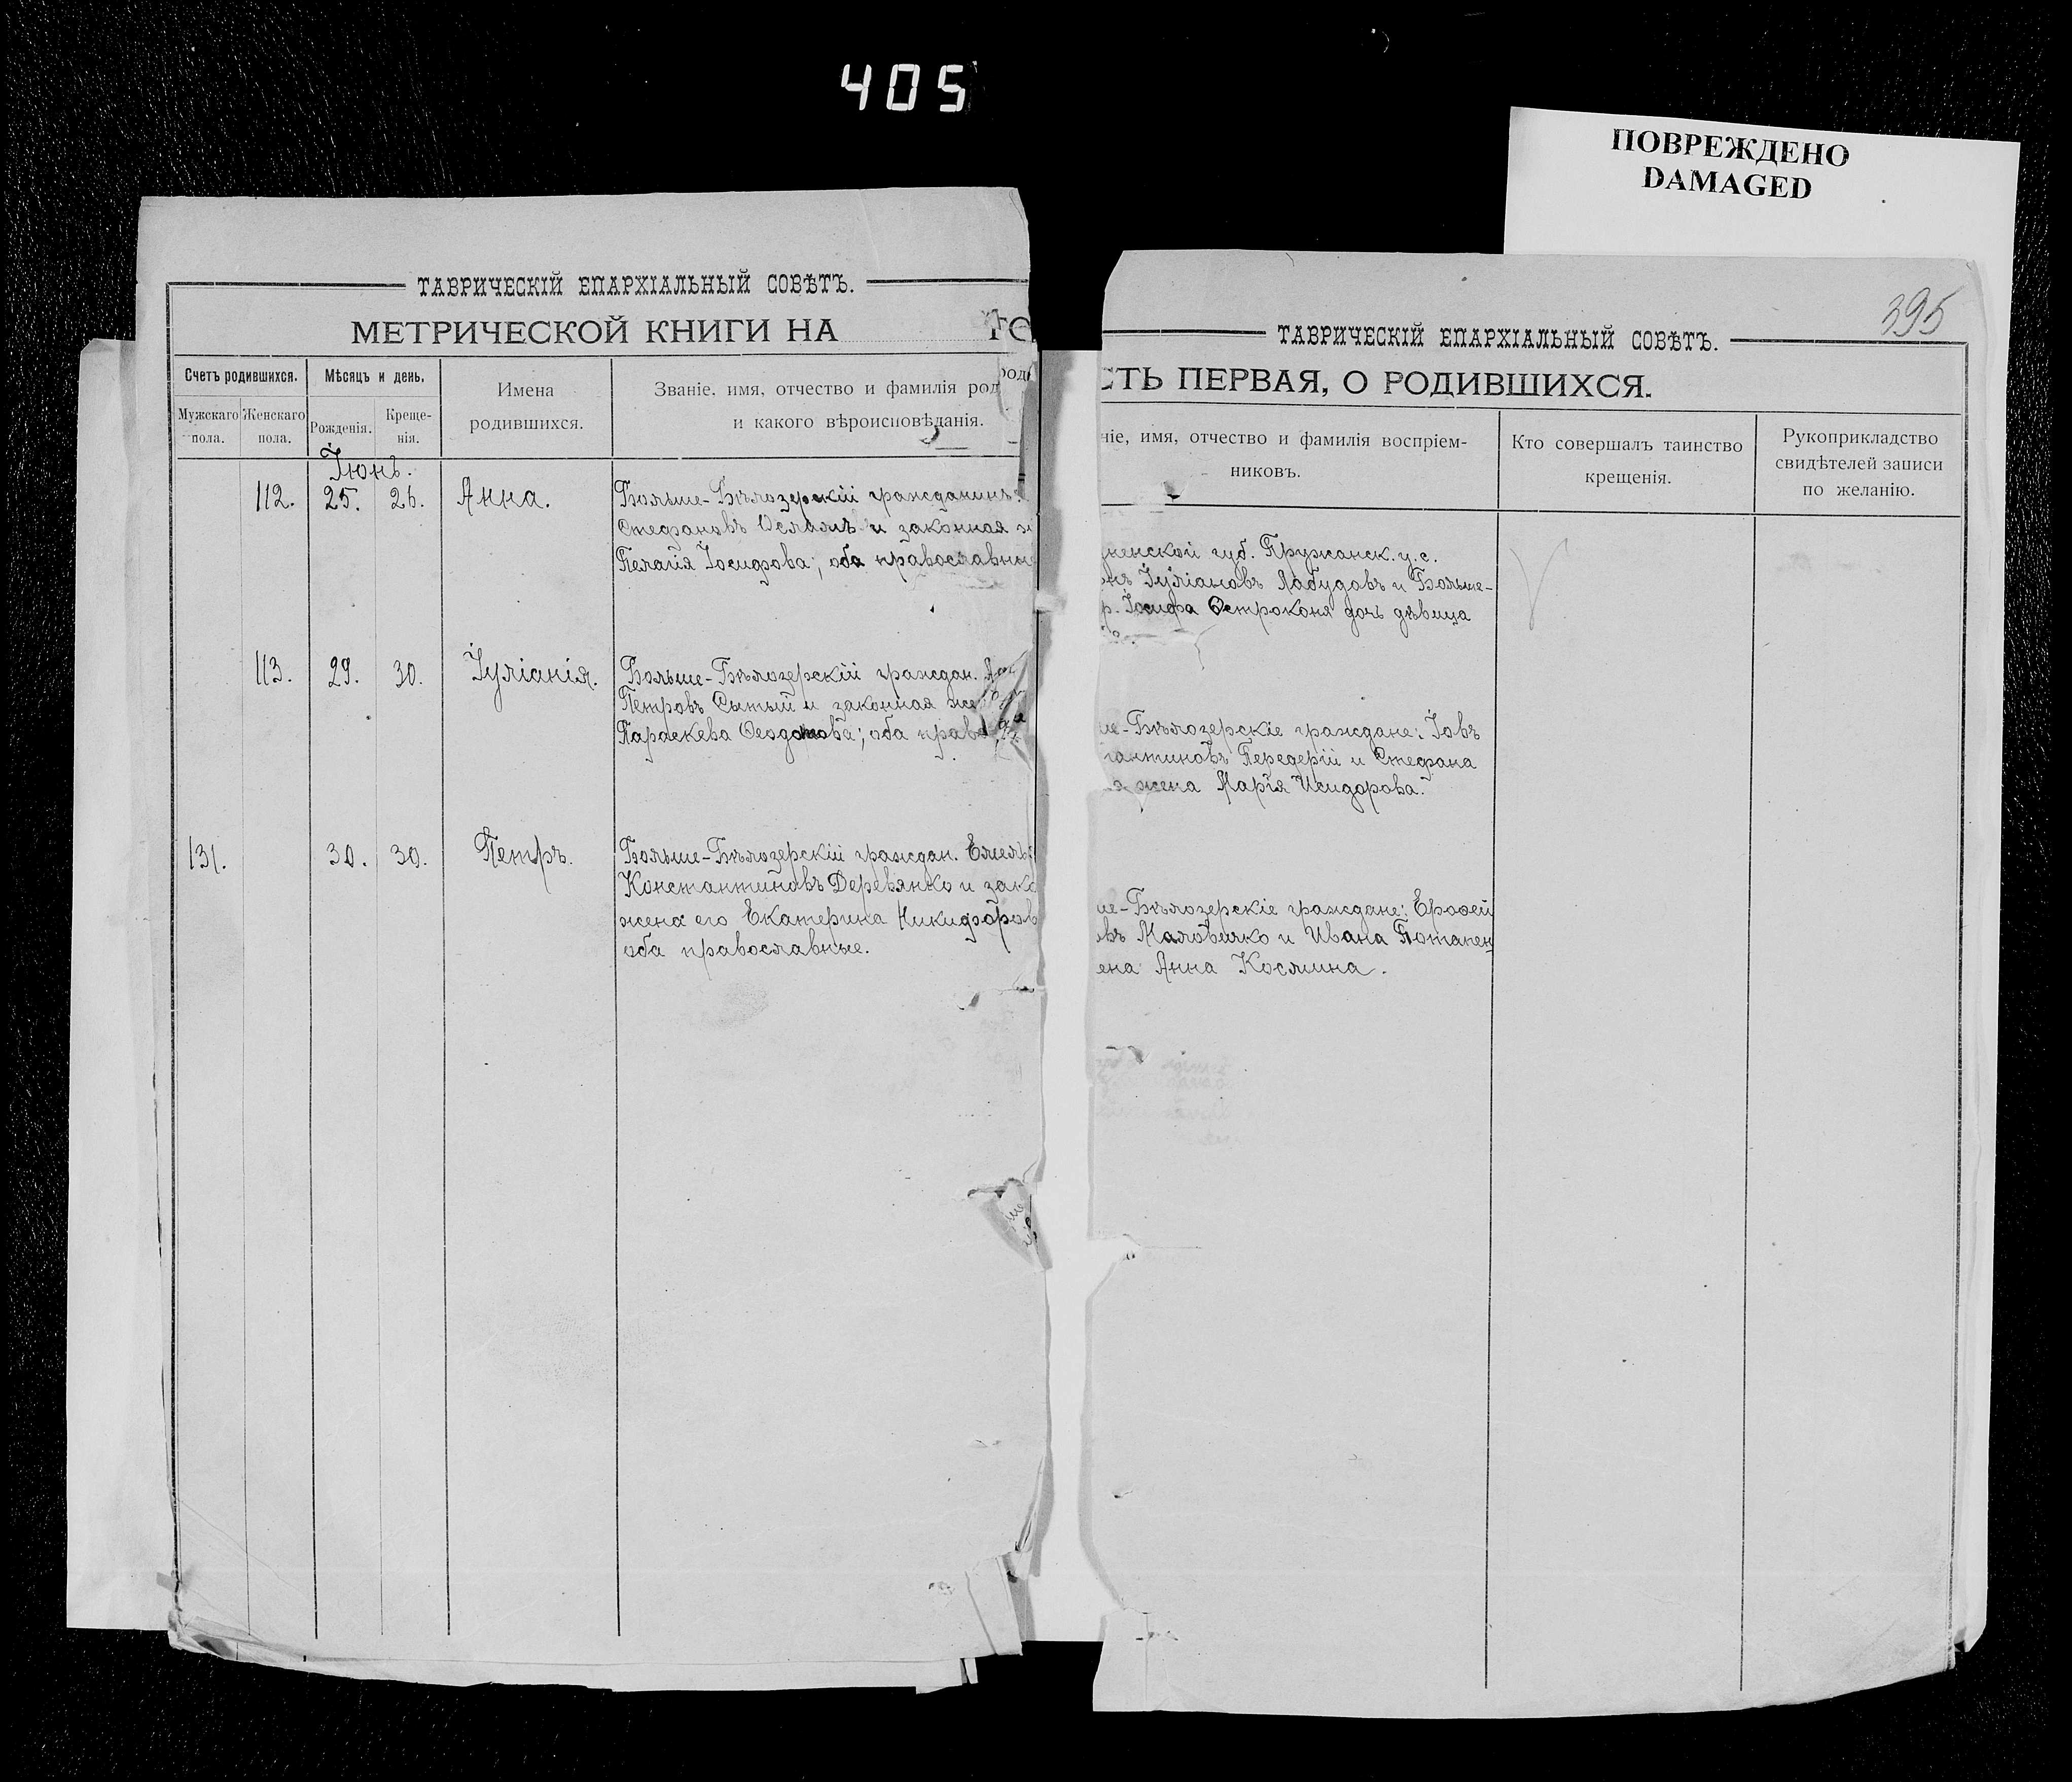 405
ПОВРЕЖДЕНО
DAMAGED
ТАВРИЧЕСКІЙ ЕПАРХІАЛЬНЫЙ СОВѢТЪ.
МЕТРИЧЕСКОЙ КНИГИ НА
Счетъ родившихся.
Мѣсяцъ и день.
Имена
родившихся.
Званіе, имя, отчество и фамилія род
и какого вѣроисповѣданія.
Мужскаго
пола.
Женскаго
пола.
Рожденія.
Креще-
нія.
Іюнь.
112. 25. 26. Анна.
Больше-Бѣлозерскій гражданинъ
Стефановъ и законная
Пелагія Іосифова; оба православны
113. 29. 30. Іуліанія.
Больше-Бѣлозерскій граждан.
Петровъ Сытый и законная же
Параскева; оба прав
131. 30. 30. Петръ.
Больше-Бѣлозерскій граждан. Емель
Константиновъ Деревянко и зако
жена его Екатерина Никифоров
оба православные.
395
ТАВРИЧЕСКІЙ ЕПАРХІАЛЬНЫЙ СОВѢТЪ.
СТЬ ПЕРВАЯ, О РОДИВШИХСЯ.
ніе, имя, отчество и фамилія воспріем-
никовъ.
Кто совершалъ таинство
крещенія.
Рукоприкладство
свидѣтелей записи
по желанію.
дненской губ. Пружанск. у. с.
Іуліановъ Лабудовъ и Больше-
р. Іосифа Остроконя дочь дѣвица
ше-Бѣлозерскіе граждане: Іовъ
тантиновъ Передерій и Стефана
жена Марія Исидорова.
ше-Бѣлозерскіе граждане: Ерофей
овъ Маловичко и Ивана Потапен
ена Анна Космина.